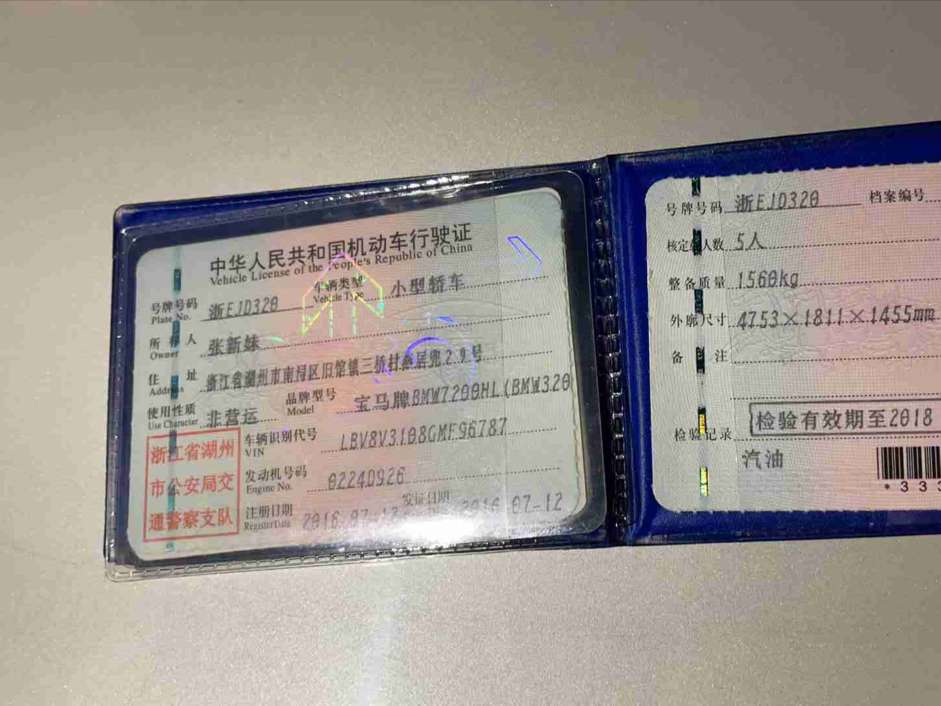 中华人民共和国机动车行驶证
Vehicle License of the People's Republic of China
号牌号码 浙EJD320 车辆类型 小型轿车
Plate No. Vehicle Type
所有人 张新妹
Owner
住址 浙江省湖州市南浔区旧馆镇三桥村
Address
使用性质 非营运 品牌型号 宝马牌BMW7200HL(BMW320
Use Character Model
浙江省湖州
市公安局交
通警察支队
车辆识别代号 LBV8V3108GMF96787
VIN
发动机号码 02240926
Engine No.
注册日期 2016-07-12 发证日期 2016-07-12
Register Date
号牌号码 浙EJD320 档案编号
核定载人数 5人
整备质量 1560kg
外廓尺寸 4753×1811×1455mm
备注
检验记录 检验有效期至2018
汽油
*335